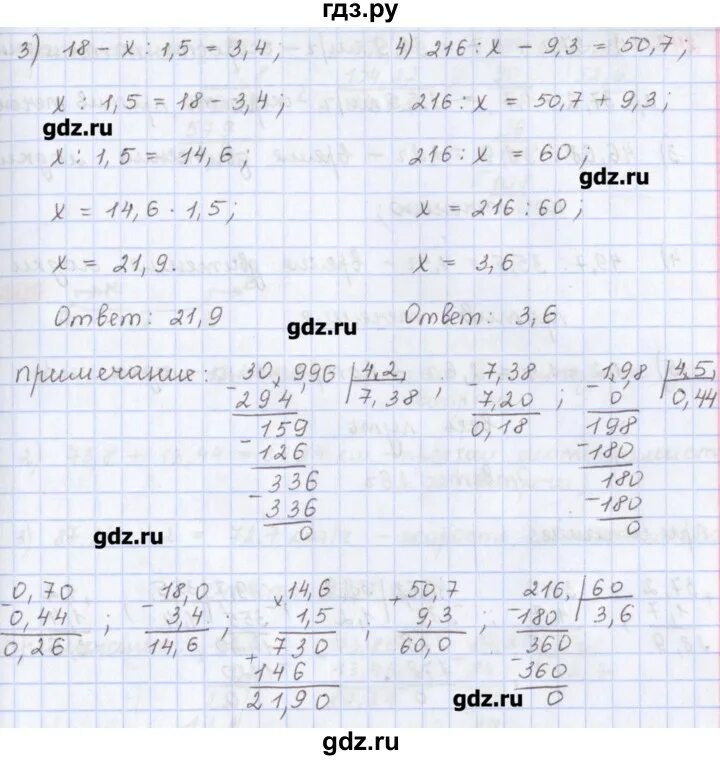 гдз.ру
3) 18 - x : 1,5 = 3,4;
x : 1,5 = 18 - 3,4;
gdz.ru
x : 1,5 = 14,6;
x = 14,6 · 1,5;
x = 21,9.
Ответ: 21,9
4) 216 : x - 9,3 = 50,7;
216 : x = 50,7 + 9,3;
216 : x = 60;
gdz.ru
x = 216 : 60;
x = 3,6
Ответ: 3,6
gdz.ru
примечание:
30,996 | 4,2
- 294 | 7,38 ;
159
- 126
336
- 336
0
- 7,38
7,20 ;
0,18
- 1,98 | 4,5
0 | 0,44
198
- 180
180
- 180
0
gdz.ru
- 0,70
0,44 ;
0,26
- 18,0
3,4 ;
14,6
× 14,6
1,5 ;
730
+ 146
21,90
+ 50,7
9,3 ;
60,0
216, | 60
- 180 | 3,6
360
- 360
0
gdz.ru
gdz.ru